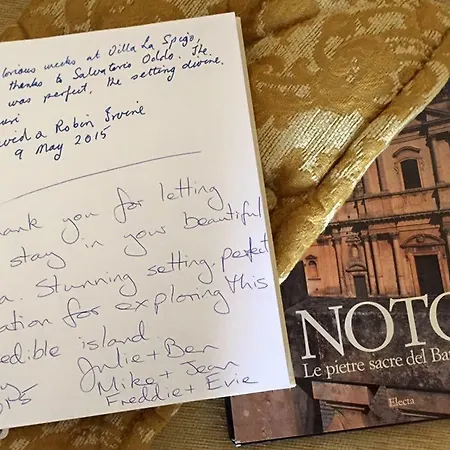 glorious weeks at Villa La Spigo,
thanks to Salvatorio Oddo. The
was perfect, the setting divine.
David a Robin Irvine
9 May 2015
Thank you for letting
stay in your beautiful
Stunning setting, perfect
location for exploring this
incredible island.
Julie + Ben
Mike + Jean
Freddie + Evie
NOTO
Le pietre sacre del Ba
Electa